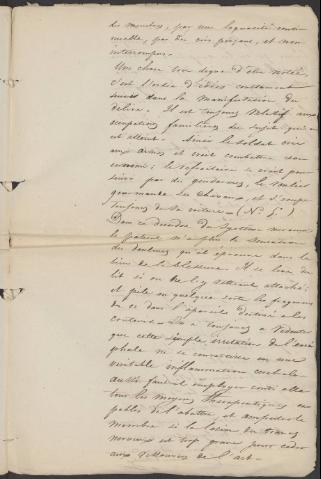 des membres, par une loquacité conti
nuelle, par des cris perçans, et non
interrompus.
Une chose bien digne d'être notée,
c'est l'ordre d'idées constamment
suivi dans la manifestation du
délire. Il est toujours relatif aux
occupations familières du sujet qui en
est atteint. Ainsi le soldat crie
aux armes et croit combattre son
ennemi; le se croit pour
suivi par des gendarmes, le
gourmande les chevaux, et s'occupe
toujours de sa voiture. (N° 5.)
Dans ce désordre du système nerveux
le patient n'a plus la sensation
des douleurs qu'il éprouve dans le
lieu de la blessure. Il se lève du
lit si on ne l'y retient attaché;
et jette en quelque sorte les fragmens
de ce dans l'appareil destiné à les
contenir. On a toujours à redouter
que cette simple irritation de l'encé
phale ne se convertisse en une
véritable inflammation cérébrale
aussi faut-il employer contre elle
tous les moyens thérapeutiques ca
pables de l'abattre, et amputer le
membre si la lésion du
nerveux est trop grave pour céder
aux ressources de l'art.